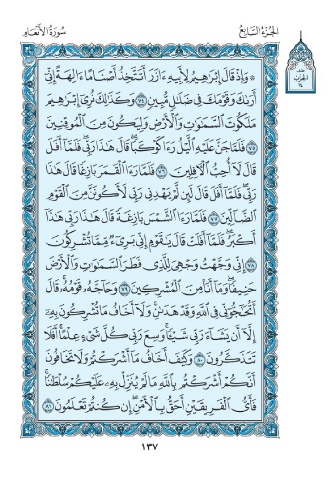 الجزء السابع
سورة الأنعام
الحزب
١٤
۞ وَإِذْ قَالَ إِبْرَٰهِيمُ لِأَبِيهِ ءَازَرَ أَتَتَّخِذُ أَصْنَامًا ءَالِهَةً إِنِّىٓ
أَرَىٰكَ وَقَوْمَكَ فِى ضَلَٰلٍ مُّبِينٍ ٧٤ وَكَذَٰلِكَ نُرِىٓ إِبْرَٰهِيمَ
مَلَكُوتَ ٱلسَّمَٰوَٰتِ وَٱلْأَرْضِ وَلِيَكُونَ مِنَ ٱلْمُوقِنِينَ
٧٥ فَلَمَّا جَنَّ عَلَيْهِ ٱلَّيْلُ رَءَا كَوْكَبًا قَالَ هَٰذَا رَبِّى فَلَمَّآ أَفَلَ
قَالَ لَآ أُحِبُّ ٱلْءَافِلِينَ ٧٦ فَلَمَّا رَءَا ٱلْقَمَرَ بَازِغًا قَالَ هَٰذَا
رَبِّى فَلَمَّآ أَفَلَ قَالَ لَئِن لَّمْ يَهْدِنِى رَبِّى لَأَكُونَنَّ مِنَ ٱلْقَوْمِ
ٱلضَّآلِّينَ ٧٧ فَلَمَّا رَءَا ٱلشَّمْسَ بَازِغَةً قَالَ هَٰذَا رَبِّى هَٰذَآ
أَكْبَرُ فَلَمَّآ أَفَلَتْ قَالَ يَٰقَوْمِ إِنِّى بَرِىٓءٌ مِّمَّا تُشْرِكُونَ
٧٨ إِنِّى وَجَّهْتُ وَجْهِىَ لِلَّذِى فَطَرَ ٱلسَّمَٰوَٰتِ وَٱلْأَرْضَ
حَنِيفًا وَمَآ أَنَا۠ مِنَ ٱلْمُشْرِكِينَ ٧٩ وَحَآجَّهُۥ قَوْمُهُۥ قَالَ
أَتُحَٰٓجُّوٓنِّى فِى ٱللَّهِ وَقَدْ هَدَىٰنِ وَلَآ أَخَافُ مَا تُشْرِكُونَ بِهِۦٓ
إِلَّآ أَن يَشَآءَ رَبِّى شَيْـًٔا وَسِعَ رَبِّى كُلَّ شَىْءٍ عِلْمًا أَفَلَا
تَتَذَكَّرُونَ ٨٠ وَكَيْفَ أَخَافُ مَآ أَشْرَكْتُمْ وَلَا تَخَافُونَ
أَنَّكُمْ أَشْرَكْتُم بِٱللَّهِ مَا لَمْ يُنَزِّلْ بِهِۦ عَلَيْكُمْ سُلْطَٰنًا
فَأَىُّ ٱلْفَرِيقَيْنِ أَحَقُّ بِٱلْأَمْنِ إِن كُنتُمْ تَعْلَمُونَ ٨١
١٣٧